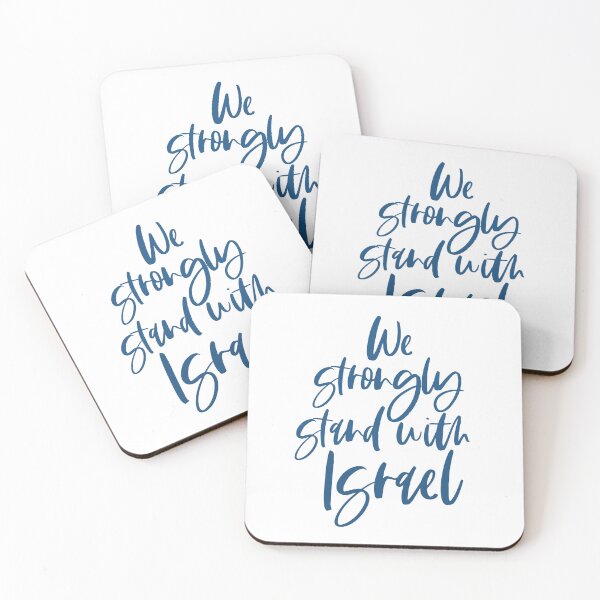 We
strongly
stand with
We
strongly
stand with
Israel
We
strongly
stand with
Israel
We
strongly
stand with
Israel